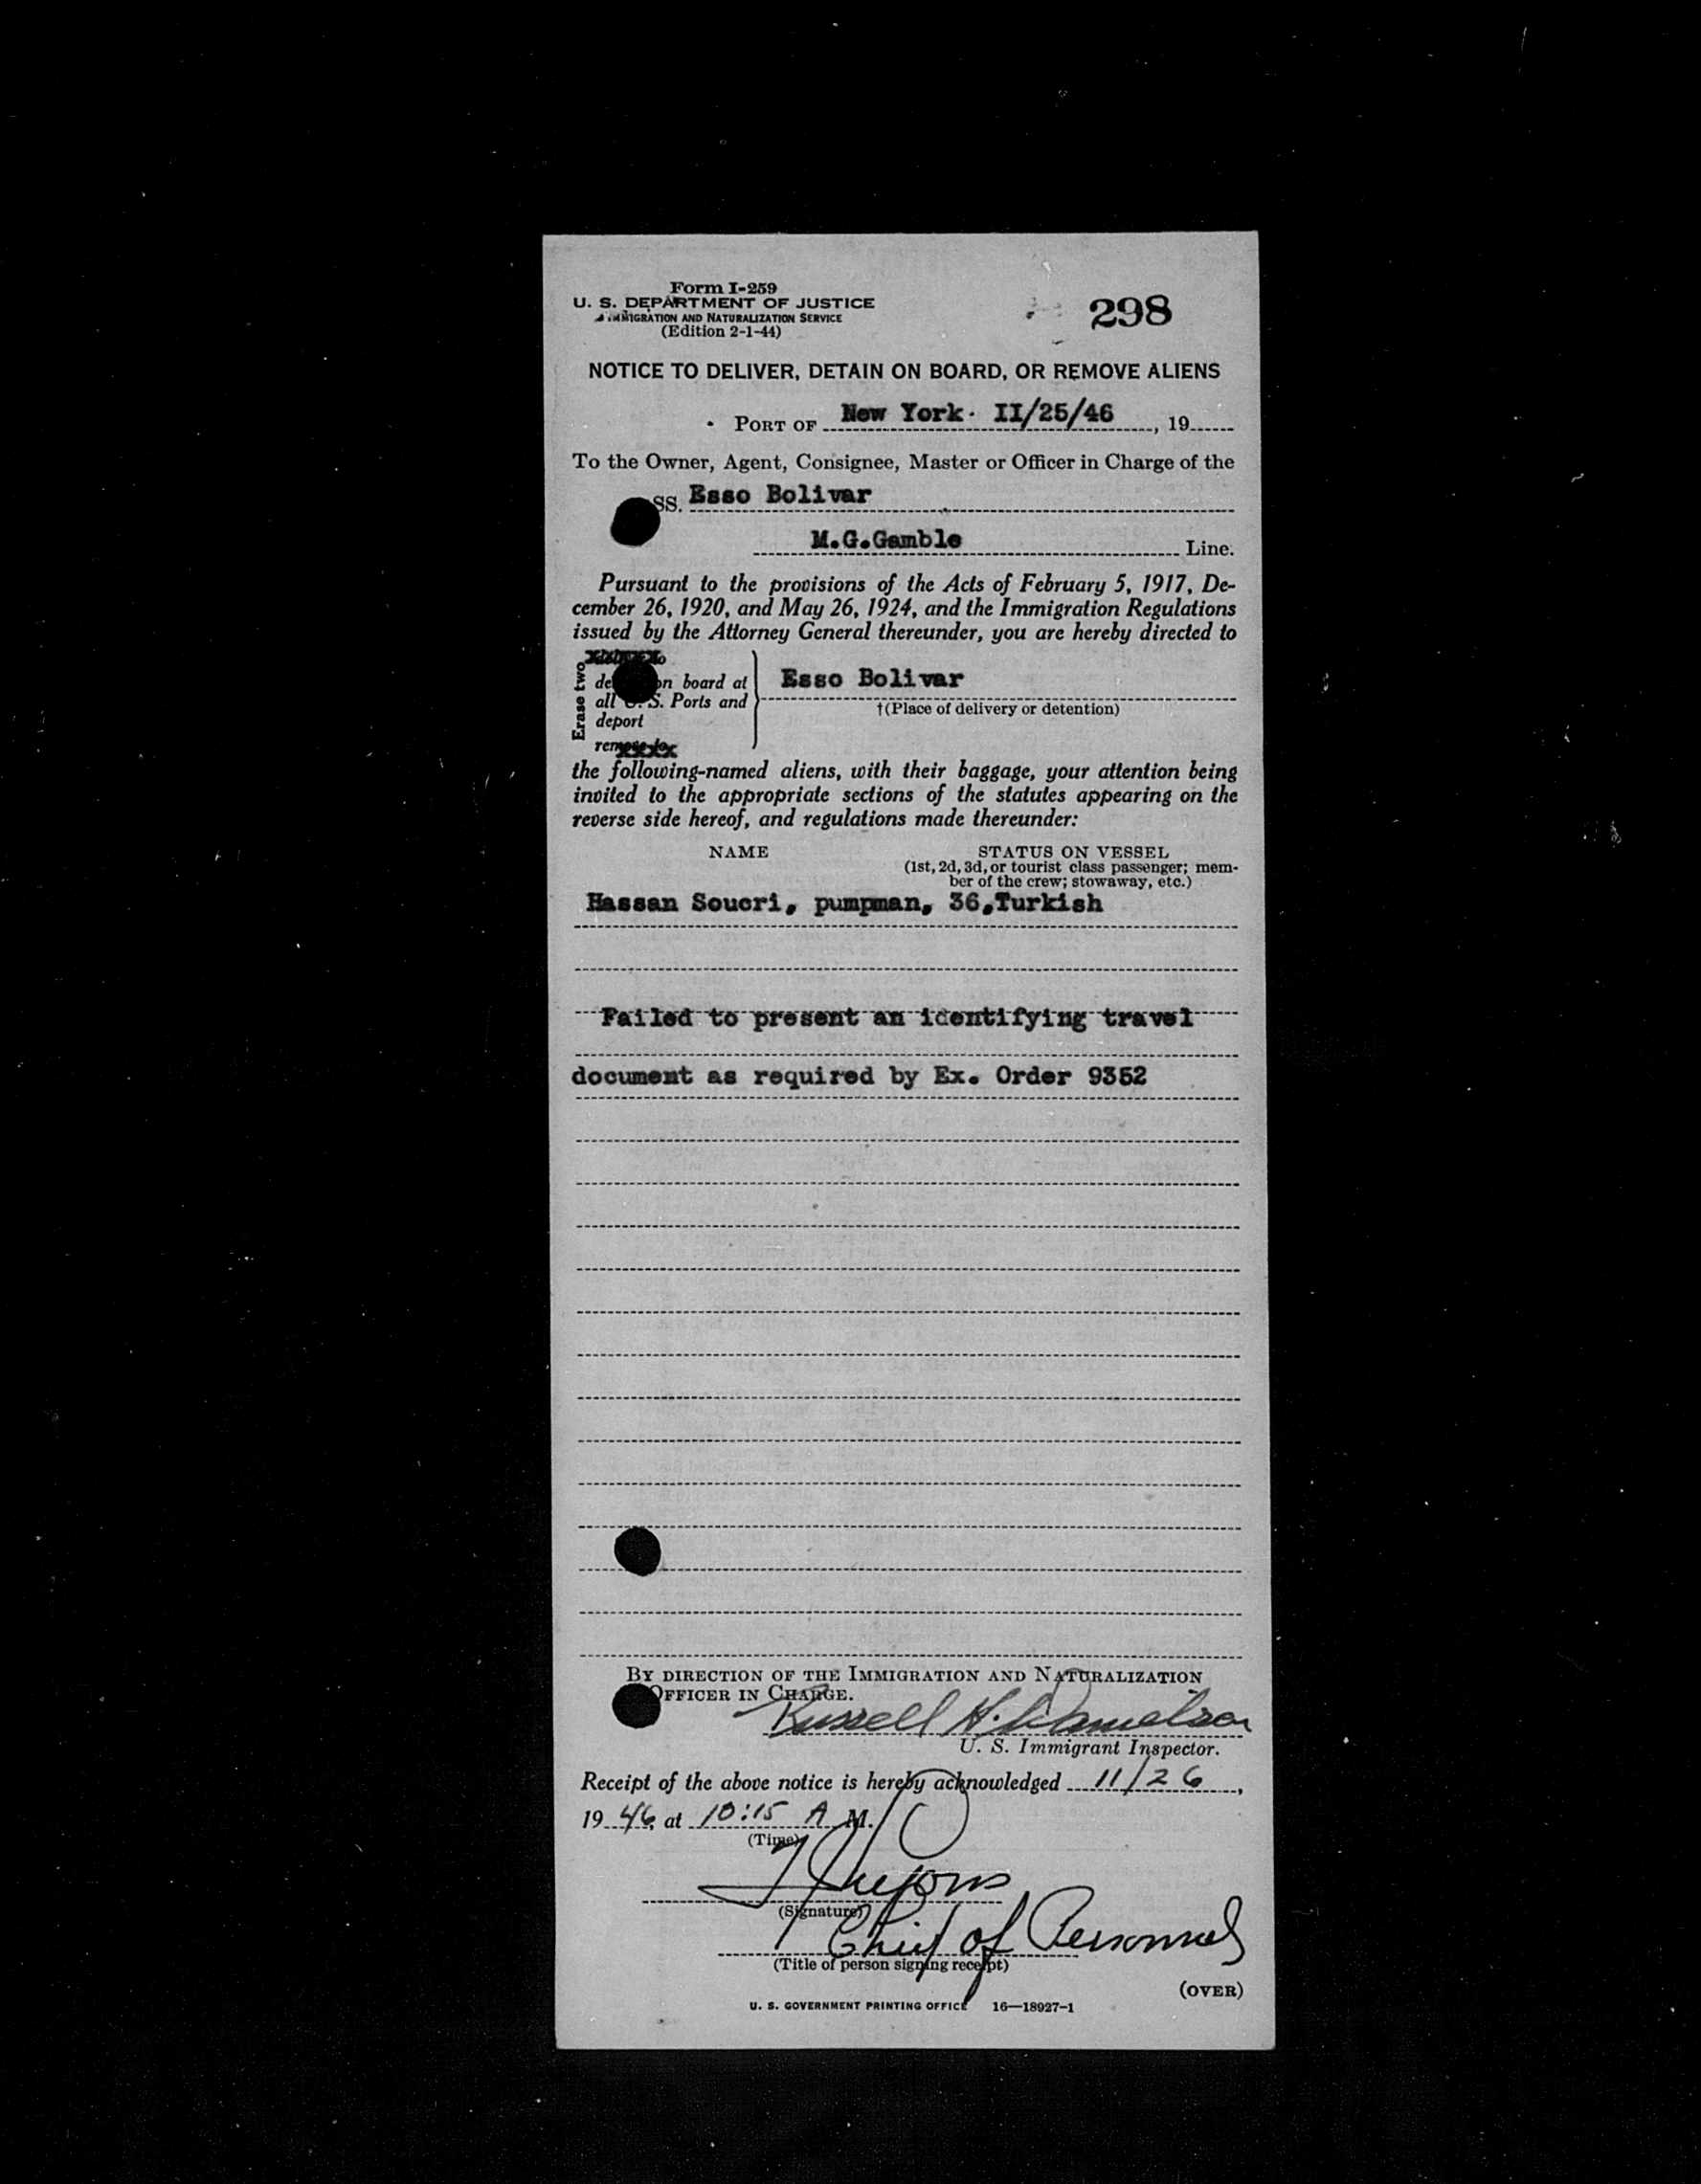 Form I-259
U. S. DEPARTMENT OF JUSTICE
IMMIGRATION AND NATURALIZATION SERVICE
(Edition 2-1-44)
298
NOTICE TO DELIVER, DETAIN ON BOARD, OR REMOVE ALIENS
PORT OF New York. II/25/46, 19
To the Owner, Agent, Consignee, Master or Officer in Charge of the
SS. Esso Bolivar
M.G.Gamble Line.
Pursuant to the provisions of the Acts of February 5, 1917, De-
cember 26, 1920, and May 26, 1924, and the Immigration Regulations
issued by the Attorney General thereunder, you are hereby directed to
Erase two
de on board at
all U. S. Ports and
deport
remove to
Esso Bolivar
†(Place of delivery or detention)
the following-named aliens, with their baggage, your attention being
invited to the appropriate sections of the statutes appearing on the
reverse side hereof, and regulations made thereunder:
NAME
STATUS ON VESSEL
(1st, 2d, 3d, or tourist class passenger; mem-
ber of the crew; stowaway, etc.)
Hassan Soucri, pumpman, 36,Turkish
Failed to present an identifying travel
document as required by Ex. Order 9352
BY DIRECTION OF THE IMMIGRATION AND NATURALIZATION
OFFICER IN CHARGE.
Russell H. Danielson
U. S. Immigrant Inspector.
Receipt of the above notice is hereby acknowledged 11/26,
1946, at 10:15 A M.
(Time)
(Signature)
Chief of Personnel
(Title of person signing receipt)
(OVER)
U. S. GOVERNMENT PRINTING OFFICE 16—18927-1